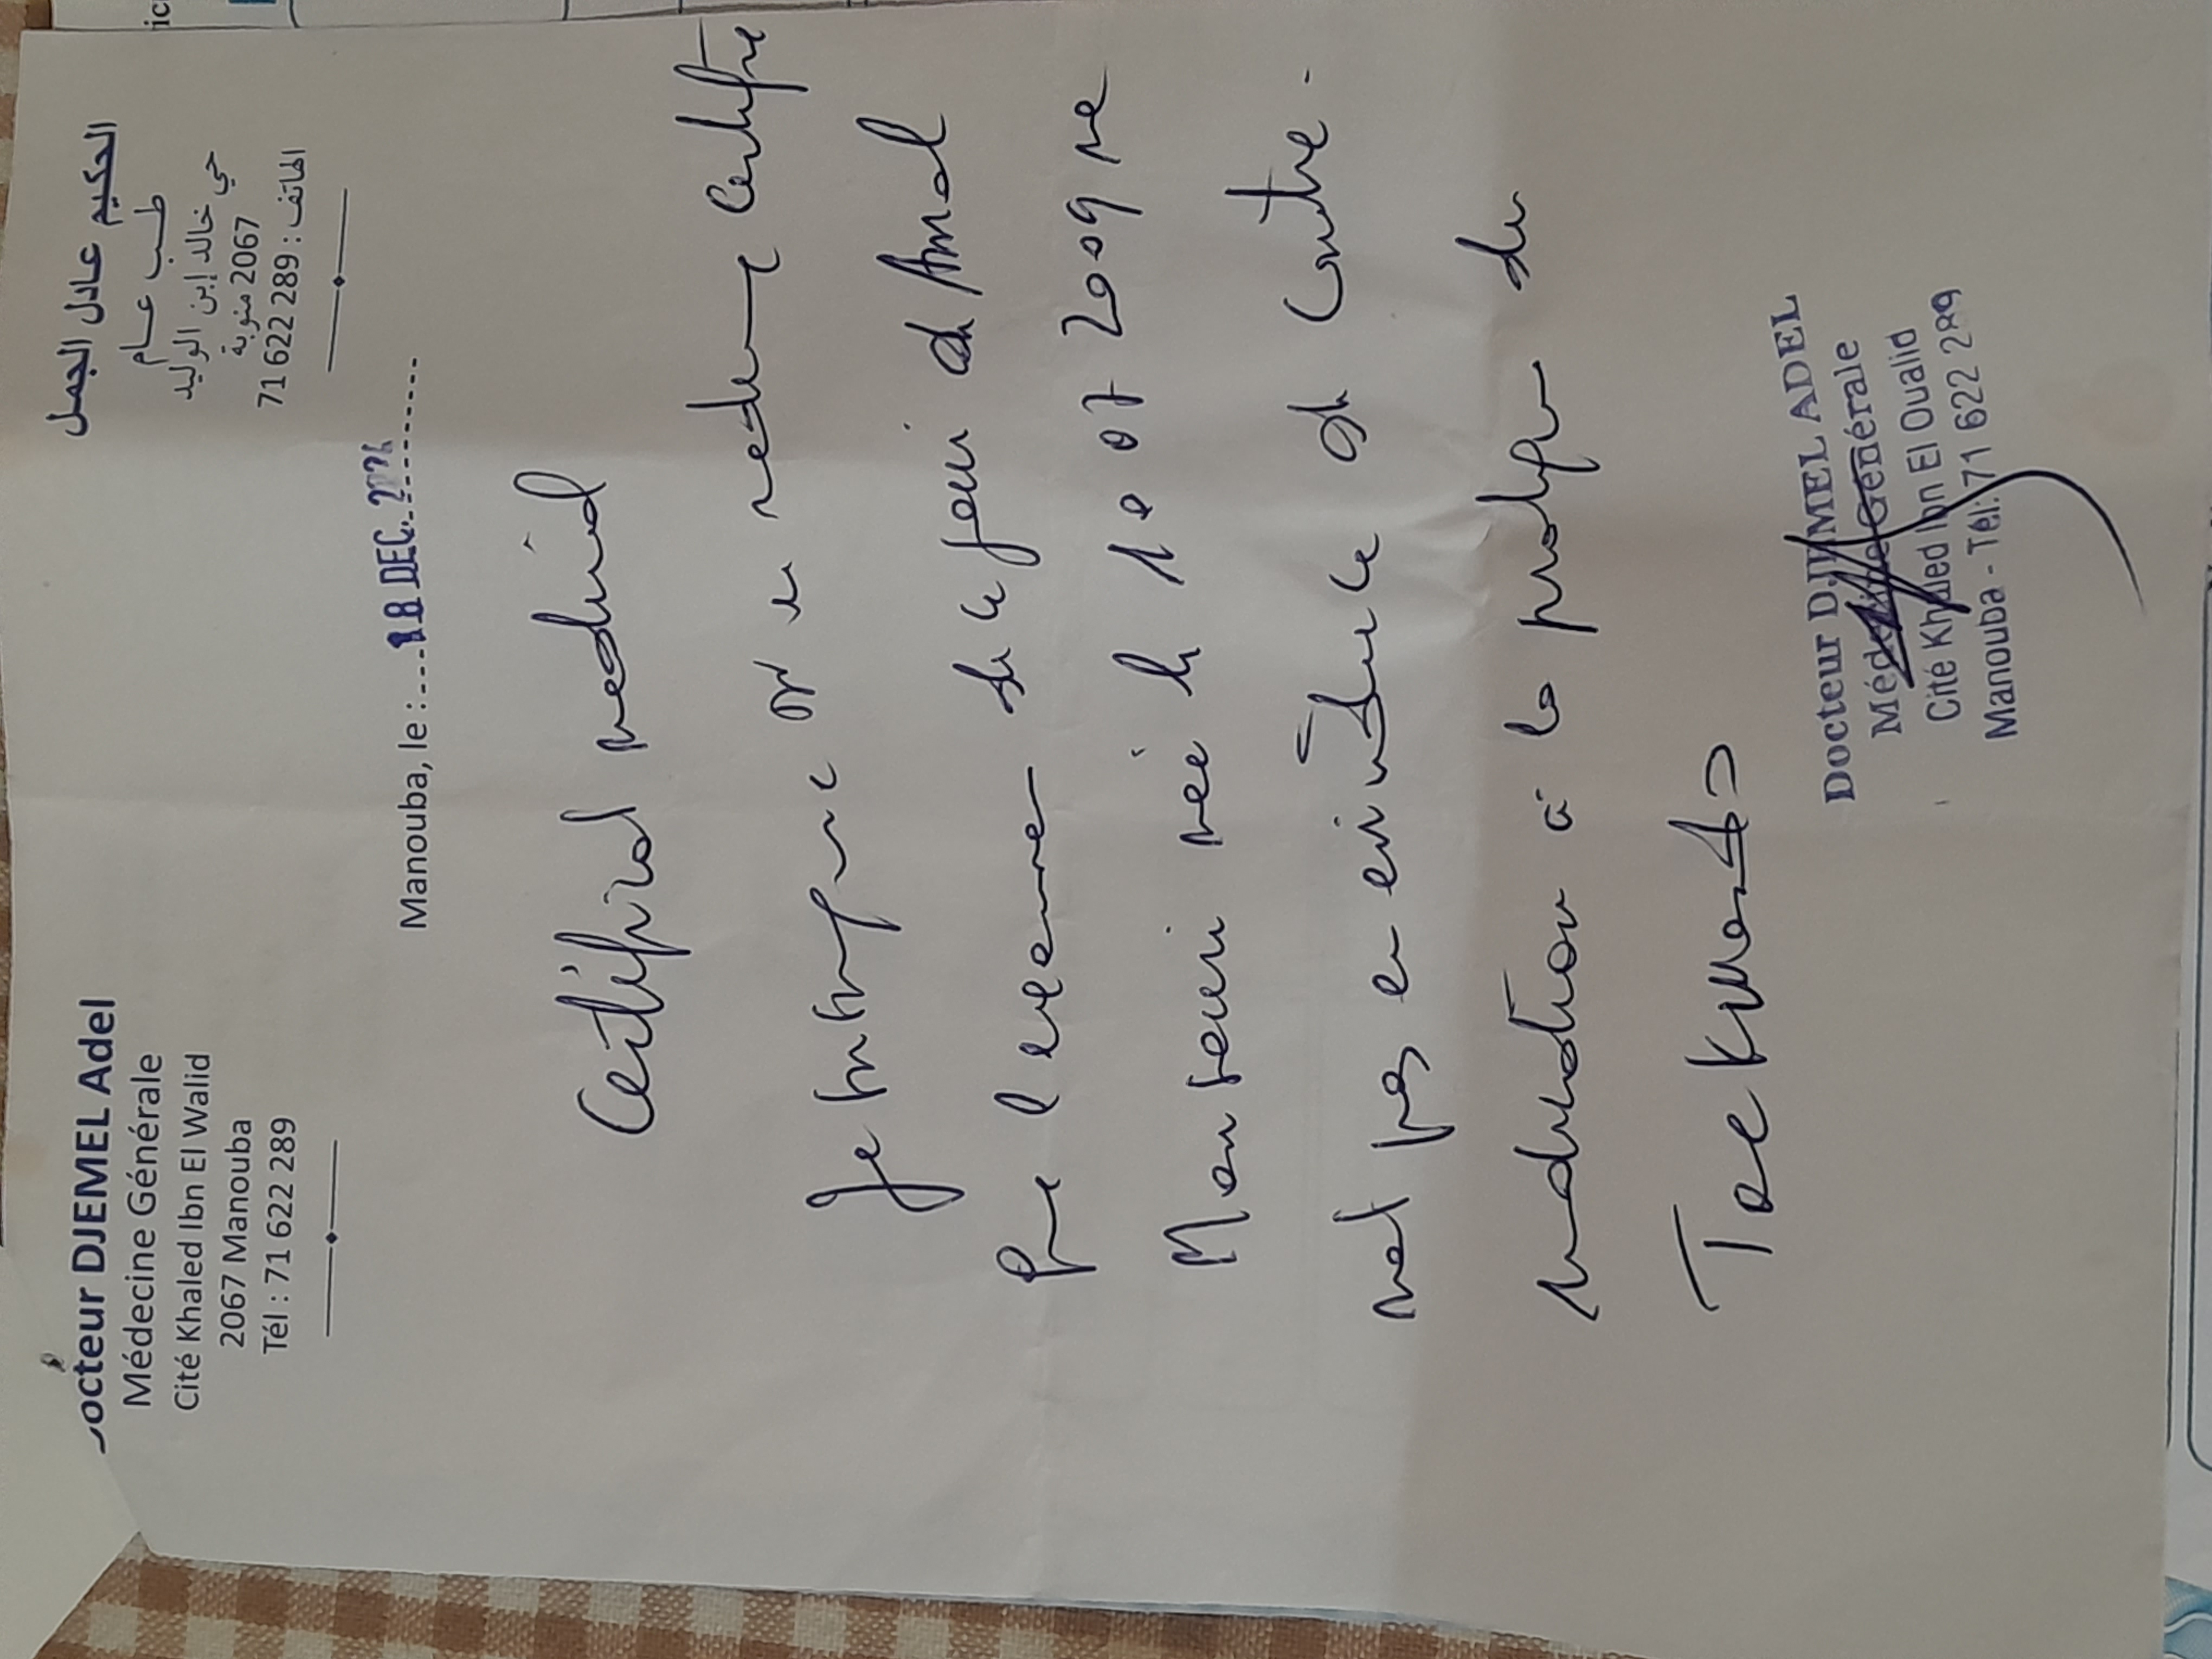 Docteur DJEMEL Adel
Médecine Générale
Cité Khaled Ibn El Walid
2067 Manouba
Tél : 71 622 289
الحكيم عادل الجمل
طب عام
حي خالد إبن الوليد
2067 منوبة
الهاتف : 71 622 289
Manouba, le : 18 DEC.
Certificat médical
Je certifie
que l'examen de ce jour de Amel
Mansouri née le 10 07 2009 ne
met pas en évidence de contre-
indication à la pratique du
Taekwondo
Docteur DJEMEL ADEL
Médecine Générale
Cité Khaled Ibn El Oualid
Manouba - Tél: 71 622 289